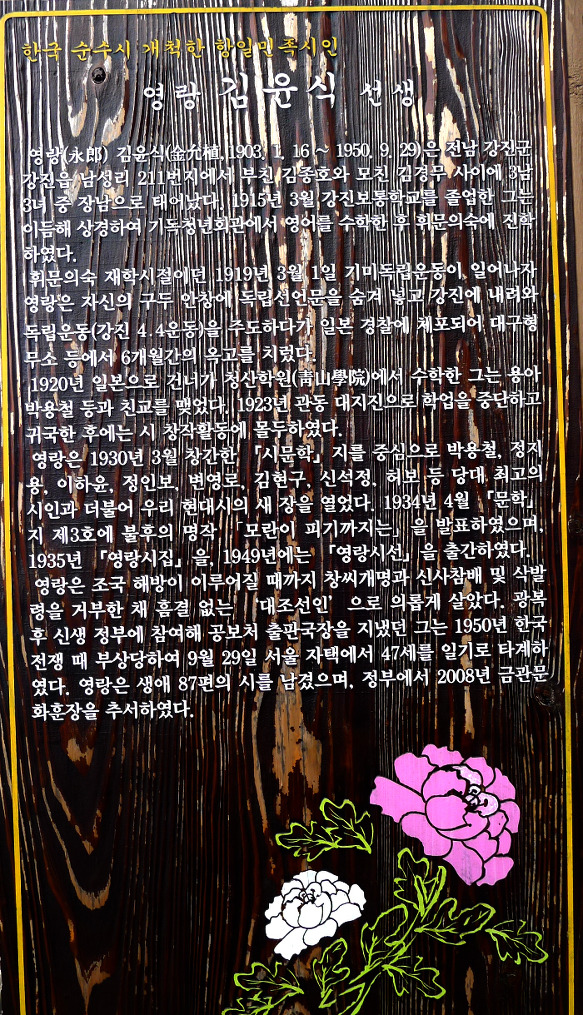 한국 순수시 개척한 항일민족시인
영랑 김윤식 선생
영랑(永郎) 김윤식(金允植.1903. 1. 16 ~ 1950. 9. 29)은 전남 강진군
강진읍 남성리 211번지에서 부친 김종호와 모친 김경무 사이에 3남
3녀 중 장남으로 태어났다. 1915년 3월 강진보통학교를 졸업한 그는
이듬해 상경하여 기독청년회관에서 영어를 수학한 후 휘문의숙에 진학
하였다.
휘문의숙 재학시절이던 1919년 3월 1일 기미독립운동이 일어나자
영랑은 자신의 구두 안창에 독립선언문을 숨겨 넣고 강진에 내려와
독립운동(강진 4.4운동)을 주도하다가 일본 경찰에 체포되어 대구형
무소 등에서 6개월간의 옥고를 치렀다.
1920년 일본으로 건너가 청산학원(靑山學院)에서 수학한 그는 용아
박용철 등과 친교를 맺었다. 1923년 관동 대지진으로 학업을 중단하고
귀국한 후에는 시 창작활동에 몰두하였다.
영랑은 1930년 3월 창간한 「시문학」지를 중심으로 박용철, 정지
용, 이하윤, 정인보, 변영로, 김현구, 신석정, 허보 등 당대 최고의
시인과 더불어 우리 현대시의 새 장을 열었다. 1934년 4월 「문학」
지 제3호에 불후의 명작 「모란이 피기까지는」을 발표하였으며,
1935년 「영랑시집」을, 1949년에는 「영랑시선」을 출간하였다.
영랑은 조국 해방이 이루어질 때까지 창씨개명과 신사참배 및 삭발
령을 거부한 채 흠결 없는 '대조선인'으로 의롭게 살았다. 광복
후 신생 정부에 참여해 공보처 출판국장을 지냈던 그는 1950년 한국
전쟁 때 부상당하여 9월 29일 서울 자택에서 47세를 일기로 타계하
였다. 영랑은 생애 87편의 시를 남겼으며, 정부에서 2008년 금관문
화훈장을 추서하였다.